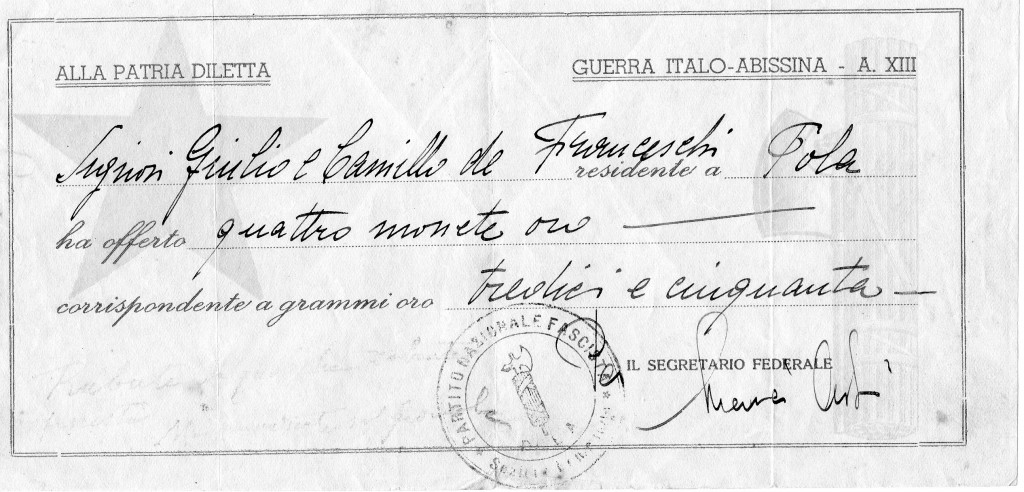 ALLA PATRIA DILETTA
GUERRA ITALO-ABISSINA - A. XIII
Signori Giulio e Camillo de Franceschi residente a Pola
ha offerto quattro monete oro
corrispondente a grammi oro tredici e cinquanta
PARTITO NAZIONALE FASCISTA
IL SEGRETARIO FEDERALE